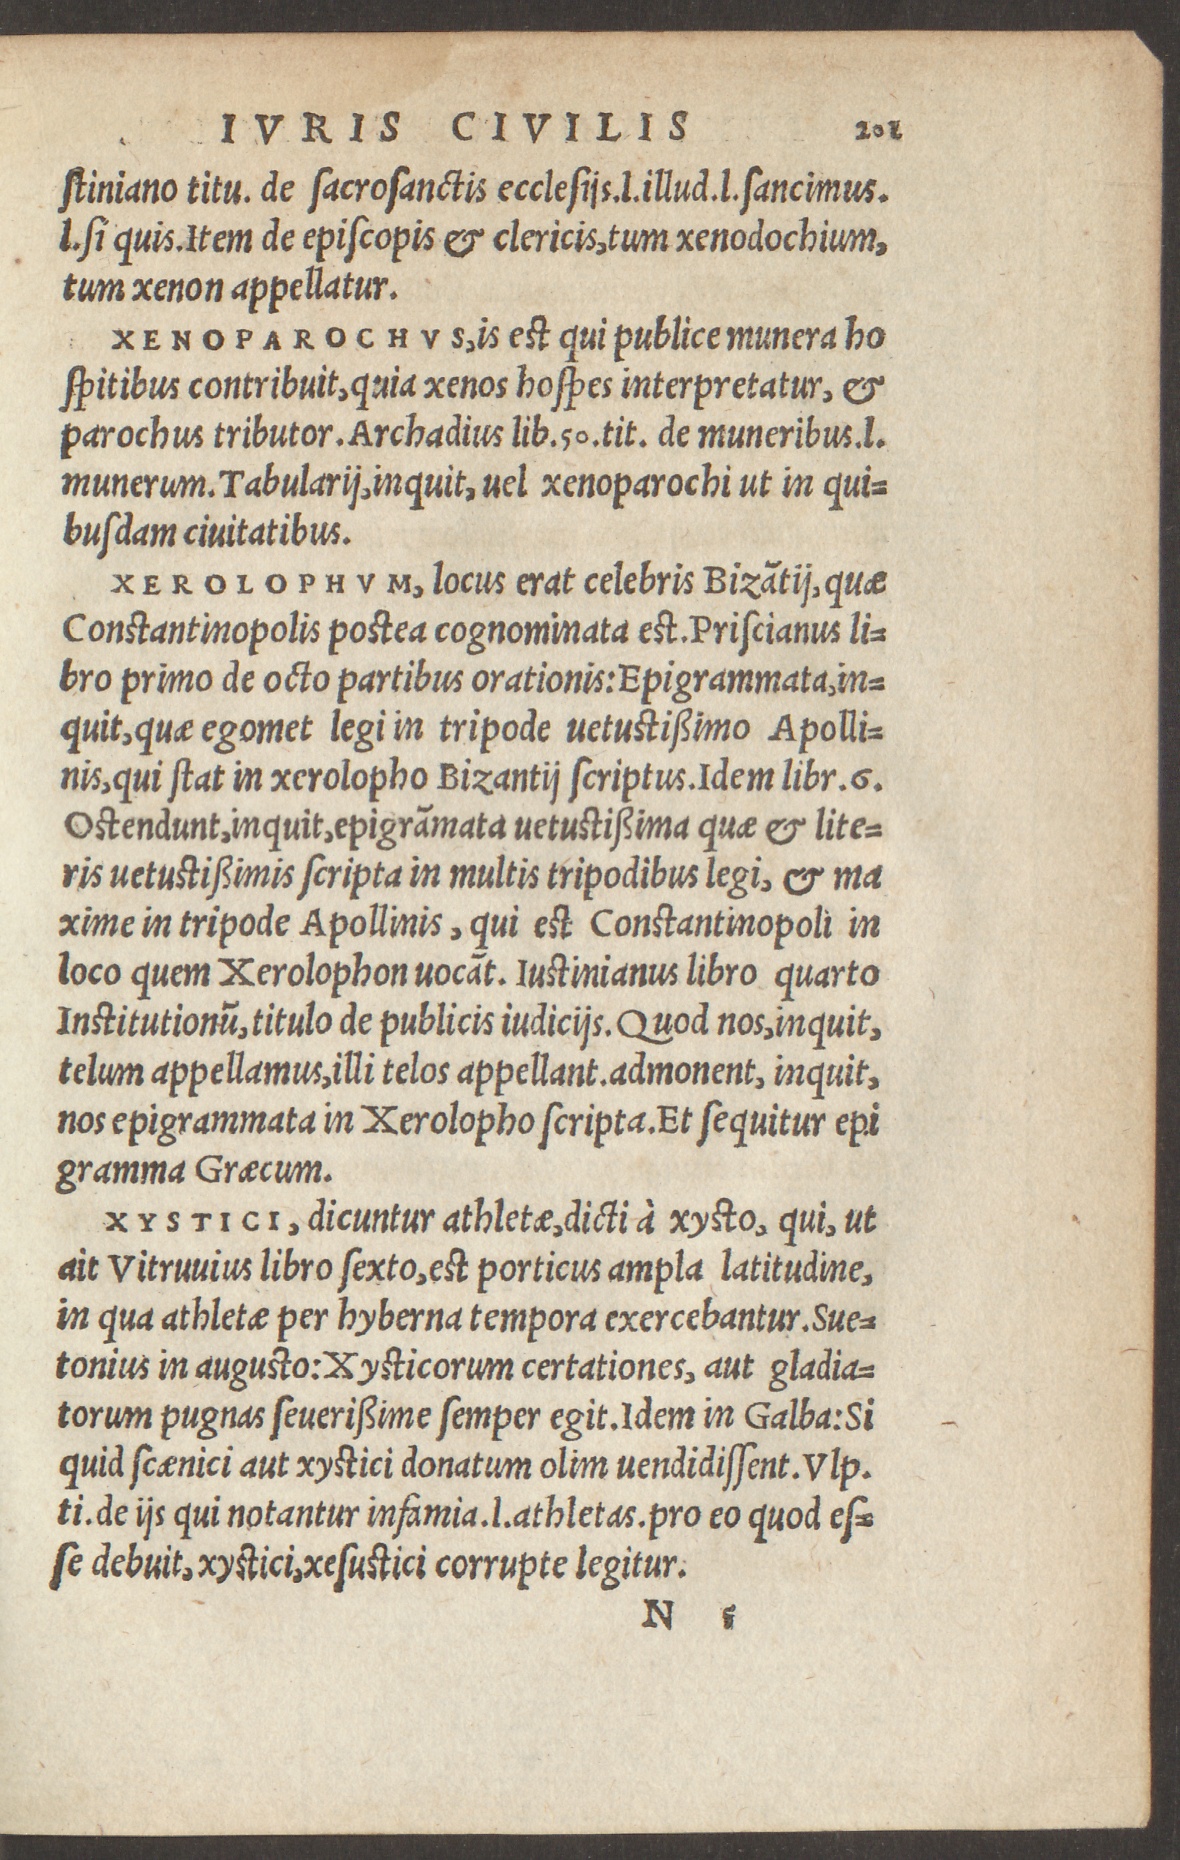 IVRIS CIVILIS 201
ſtiniano titu. de ſacroſanctis eccleſijs.l.illud.l.ſancimus.
l.ſi quis.Item de epiſcopis & clericis,tum xenodochium,
tum xenon appellatur.
XENOPAROCHVS,is est qui publice munera ho
ſpitibus contribuit,quia xenos hoſpes interpretatur, &
parochus tributor.Archadius lib.50.tit. de muneribus.l.
munerum.Tabularij,inquit, uel xenoparochi ut in qui=
buſdam ciuitatibus.
XEROLOPHVM, locus erat celebris Bizãtij,quæ
Constantinopolis postea cognominata est.Priſcianus li=
bro primo de octo partibus orationis:Epigrammata,in=
quit,quæ egomet legi in tripode uetustißimo Apolli=
nis,qui ſtat in xerolopho Bizantij ſcriptus.Idem libr.6.
Ostendunt,inquit,epigrãmata uetustißima quæ & lite=
ris uetustißimis ſcripta in multis tripodibus legi, & ma
xime in tripode Apollinis , qui est Constantinopoli in
loco quem Xerolophon uocãt. Iustinianus libro quarto
Institutionũ,titulo de publicis iudicijs.Quod nos,inquit,
telum appellamus,illi telos appellant.admonent, inquit,
nos epigrammata in Xerolopho ſcripta.Et ſequitur epi
gramma Græcum.
XYSTICI, dicuntur athletæ,dicti à xysto, qui, ut
ait Vitruuius libro ſexto,est porticus ampla latitudine,
in qua athletæ per hyberna tempora exercebantur.Sue=
tonius in augusto:Xysticorum certationes, aut gladia=
torum pugnas ſeuerißime ſemper egit.Idem in Galba:Si
quid ſcænici aut xystici donatum olim uendidiſſent.Vlp.
ti.de ijs qui notantur infamia.l.athletas.pro eo quod eſ=
ſe debuit,xystici,xeſustici corrupte legitur.
N 5